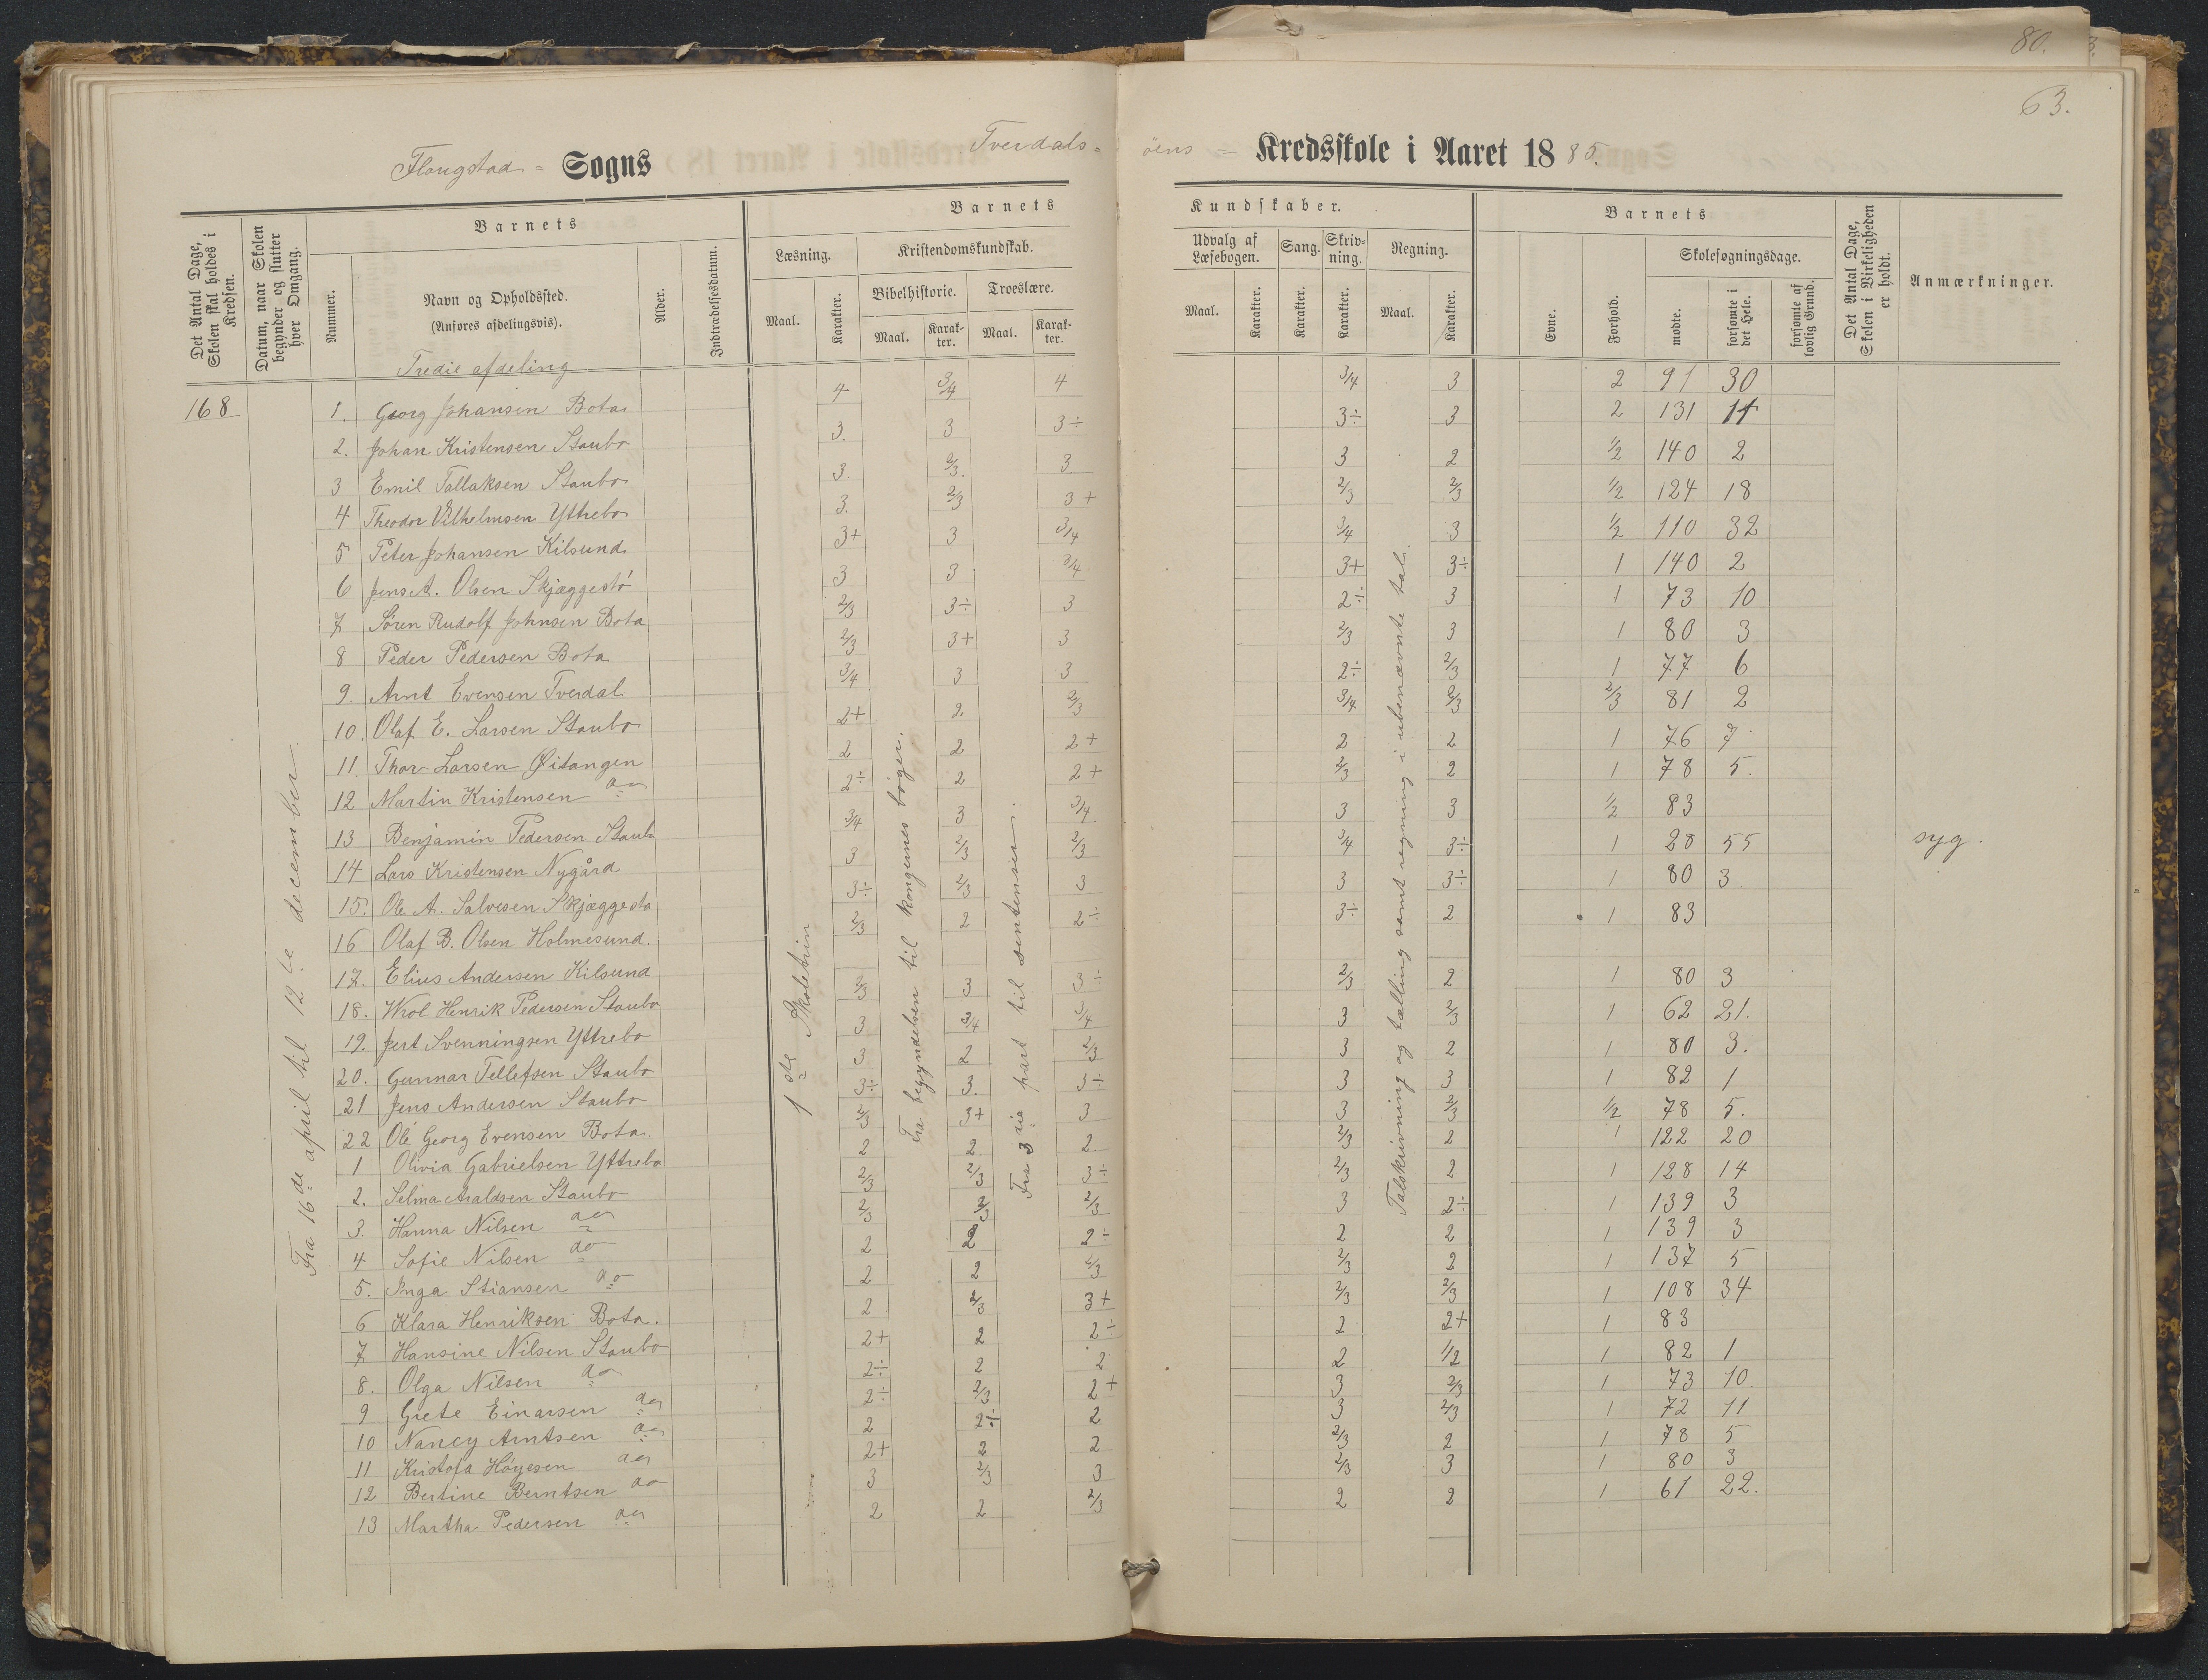 80.
63.
Flangstad = Sogns Tverdals=
öens = Kredsskole i Aaret 1885.
Det Antal Dage, Skolen skal holdes i Kredsen.
Datum, naar Skolen begynder og slutter hver Omgang.
Barnets
Nummer.
Navn og Opholdssted.
(Anføres afdelingsvis).
Alder.
Indtrædelsesdatum.
Barnets
Læsning.
Maal.
Karakter.
Kristendomskundskab.
Bibelhistorie.
Maal.
Karakter.
Troeslære.
Maal.
Karakter.
Kundskaber.
Udvalg af Læsebogen.
Maal.
Karakter.
Sang.
Karakter.
Skrivning.
Karakter.
Regning.
Maal.
Karakter.
Barnets
Evne.
Forhold.
Skolesøgningsdage.
mødte.
forsømte i det Hele.
forsømte af lovlig Grund.
Det Antal Dage, Skolen i Virkeligheden er holdt.
Anmærkninger.
Tredie afdeling
168
Fra 16de april til 12te december.
1ste Skoletrin
Fra begyndelsen til kongernes bøger.
Fra 3die part til sentenser.
Talskrivning og tælling samt regning i ubenævnte tal.
1. Georg Johansen Bota 4 3/4 4 3/4 3 2 91 30
2. Johan Kristensen Staubo 3. 3 3÷ 3÷ 3 2 131 11
3 Emil Tallaksen Staubo 3. 2/3. 3 3 2 1/2 140 2
4 Theodor Vilhelmsen Yttrebo 3. 2/3 3+ 2/3 2/3 1/2 124 18
5 Peter Johansen Kilsund 3+ 3 3/4 3/4 3 1/2 110 32
6 Jens A. Olsen Skjæggestö 3 3 3/4 3+ 3÷ 1 140 2
7 Sören Rudolf Johnsen Bota 2/3 3÷ 3 2÷ 3 1 73 10
8 Peder Pedersen Bota 2/3 3+ 3 2/3 3 1 80 3
9. Arnt Evensen Tverdal 3/4 3 3 2÷ 2/3 1 77 6
10. Olaf E. Larsen Staubo 2+ 2 2/3 3/4 2/3 2/3 81 2
11. Thor Larsen Øitangen 2 2 2+ 2 2 1 76 7
12 Martin Kristensen do 2÷ 2 2+ 2/3 2 1 78 5.
13 Benjamin Pedersen Staubo 3/4 3 3/4 3 3 1/2 83
14 Lars Kristensen Nygård 3 2/3 2/3 3/4 3÷ 1 28 55 syg.
15. Ole A. Salvesen Skjæggestö 3÷ 2/3 3 3 3÷ 1 80 3
16 Olaf B. Olsen Holmesund. 2/3 2 2÷ 3÷ 2 1 83
17. Elius Andersen Kilsund
18. Wrol Henrik Pedersen Staubo 2/3 3 3÷ 2/3 2 1 80 3
19. Jert Svenningsen Yttrebo 3 3/4 3/4 3 2/3 1 62 21.
20. Gunnar Tellefsen Staubo 3 2 2/3 3 2 1 80 3.
21 Jens Andersen Staubo 3÷ 3. 3÷ 3 3 1 82 1
22 Ole Georg Evensen Bota. 2/3 3+ 3 3 2/3 1/2 78 5.
1 Olivia Gabrielsen Yttrebo 2 2. 2. 2/3 2 1 122 20
2. Selma Araldsen Staubo 2/3 2/3 3÷ 2/3 2 1 128 14
3. Hanna Nilsen do 2/3 2/3 2/3 3 2÷ 1 139 3
4 Sofie Nilsen do 2 2 2÷ 2 2 1 139 3
5. Inga Stiansen do 2 2 2/3 2/3 2 1 137 5
6 Klara Henriksen Bota. 2 2/3 3+ 2/3 2/3 1 108 34
7 Hansine Nilsen Staubo 2+ 2 2÷ 2 2+ 1 83
8. Olga Nilsen do 2÷ 2 2 2 1/2 1 82 1
9 Grete Einarsen do 2÷ 2/3 2+ 3 2/3 1 73 10.
10 Nancy Arntsen do 2 2÷ 2 3 2/3 1 72 11
11 Kristofa Höyesen do 2+ 2 2 2/3 2 1 78 5
12 Bertine Berntsen do 3 2/3 3 2/3 3 1 80 3
13 Martha Pedersen do 2 2 2/3 2 2 1 61 22.